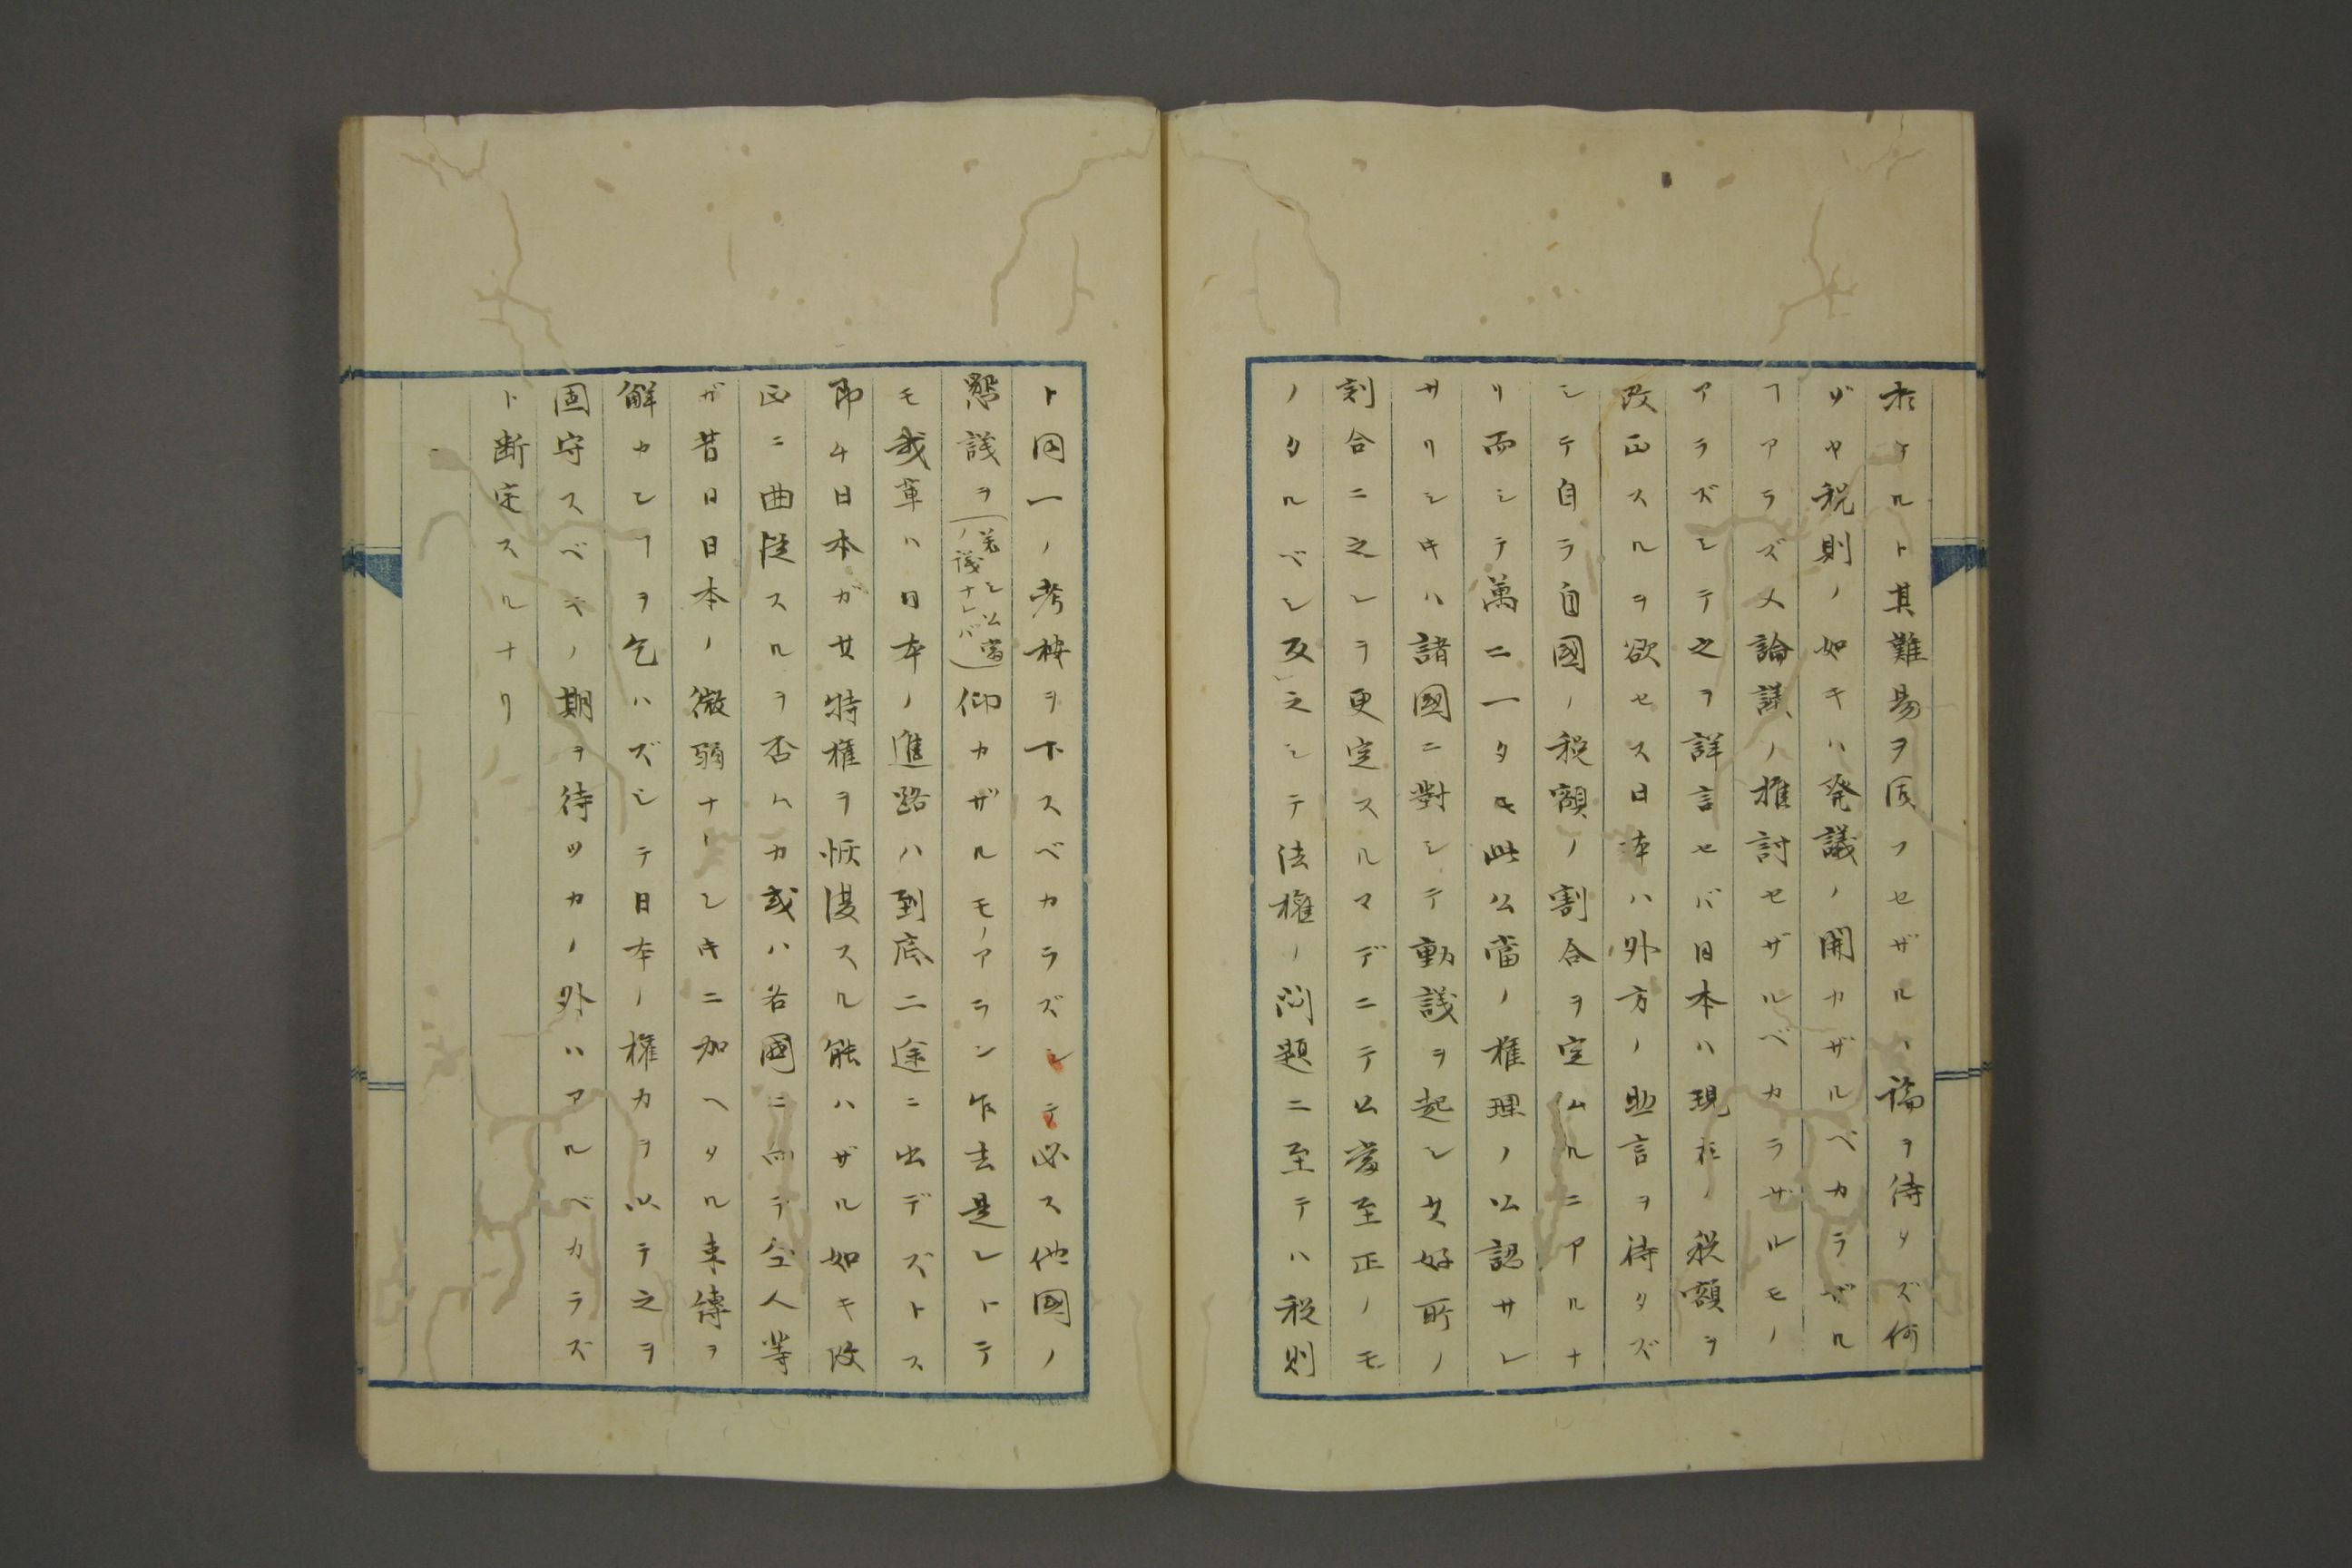 於ケルト其難易ヲ同フセザルハ論ヲ待タズ何
ゾヤ税則ノ如キハ発議ノ開カザルベカラザル
ヿアラズ又論議ノ推討セザルベカラザルモノ
アラズシテ之ヲ詳言セバ日本ハ現在ノ税額ヲ
改正スルヲ欲セス日本ハ外方ノ助言ヲ待タズ
シテ自ラ自國ノ税額ノ割合ヲ定ムルニアルナ
リ而シテ萬ニ一タモ此公當ノ権理ノ公認サレ
サリシキハ諸國ニ對シテ動議ヲ起シ其好所ノ
割合ニ之レヲ更定スルマデニテ公當至正ノモ
ノタルベシ反之シテ法権ノ問題ニ至テハ税則
ト同一ノ考按ヲ下スベカラズシテ必ス他國ノ
懇議ヲ(若シ公當ノ議ナレバ)仰カザルモノアラン乍去是レトテ
モ我軰ハ日本ノ進路ハ到底二途ニ出デズトス
即チ日本ガ其特権ヲ恢復スル能ハザル如キ改
正ニ曲従スルヲ否ムカ或ハ各國ニ向テ全人等
ガ昔日日本ノ微弱ナリシキニ加ヘタル束縛ヲ
解カレヿヲ乞ハズシテ日本ノ権力ヲ以テ之ヲ
固守スベキノ期ヲ待ツカノ外ハアルベカラズ
ト断定スルナリ